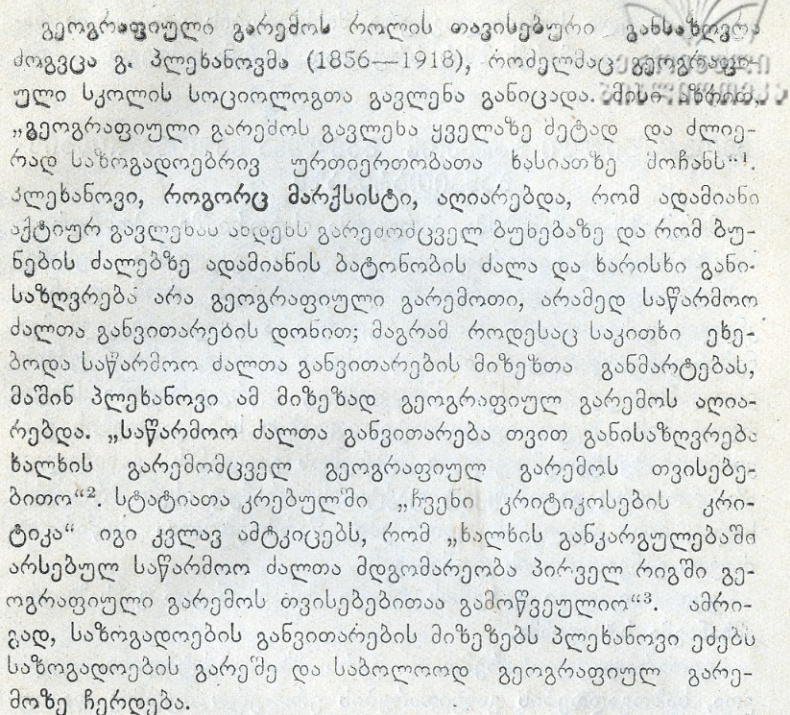 გეოგრაფიული გარემოს როლის თავისებური განსაზღვრა
მოგვცა გ. პლეხანოვმა (1856—1918), რომელმაც გეოგრაფი-
ული სკოლის სოციოლოგთა გავლენა განიცადა. მისი აზრით,
„გეოგრაფიული გარემოს გავლენა ყველაზე მეტად და ძლიე-
რად საზოგადოებრივ ურთიერთობათა ხასიათზე მოჩანს“¹.
პლეხანოვი, როგორც მარქსისტი, აღიარებდა, რომ ადამიანი
აქტიურ გავლენას ახდენს გარემომცველ ბუნებაზე და რომ ბუ-
ნების ძალებზე ადამიანის ბატონობის ძალა და ხარისხი განი-
საზღვრება არა გეოგრაფიული გარემოთი, არამედ საწარმოო
ძალთა განვითარების დონით; მაგრამ როდესაც საკითხი ეხე-
ბოდა საწარმოო ძალთა განვითარების მიზეზთა განმარტებას,
მაშინ პლეხანოვი ამ მიზეზად გეოგრაფიულ გარემოს აღია-
რებდა. „საწარმოო ძალთა განვითარება თვით განისაზღვრება
ხალხის გარემომცველ გეოგრაფიულ გარემოს თვისებე-
ბითო“². სტატიათა კრებულში „ჩვენი კრიტიკოსების კრი-
ტიკა“ იგი კვლავ ამტკიცებს, რომ „ხალხის განკარგულებაში
არსებულ საწარმოო ძალთა მდგომარეობა პირველ რიგში გე-
ოგრაფიული გარემოს თვისებებითაა გამოწვეულიო“³. ამრი-
გად, საზოგადოების განვითარების მიზეზებს პლეხანოვი ეძებს
საზოგადოების გარეშე და საბოლოოდ გეოგრაფიულ გარე-
მოზე ჩერდება.